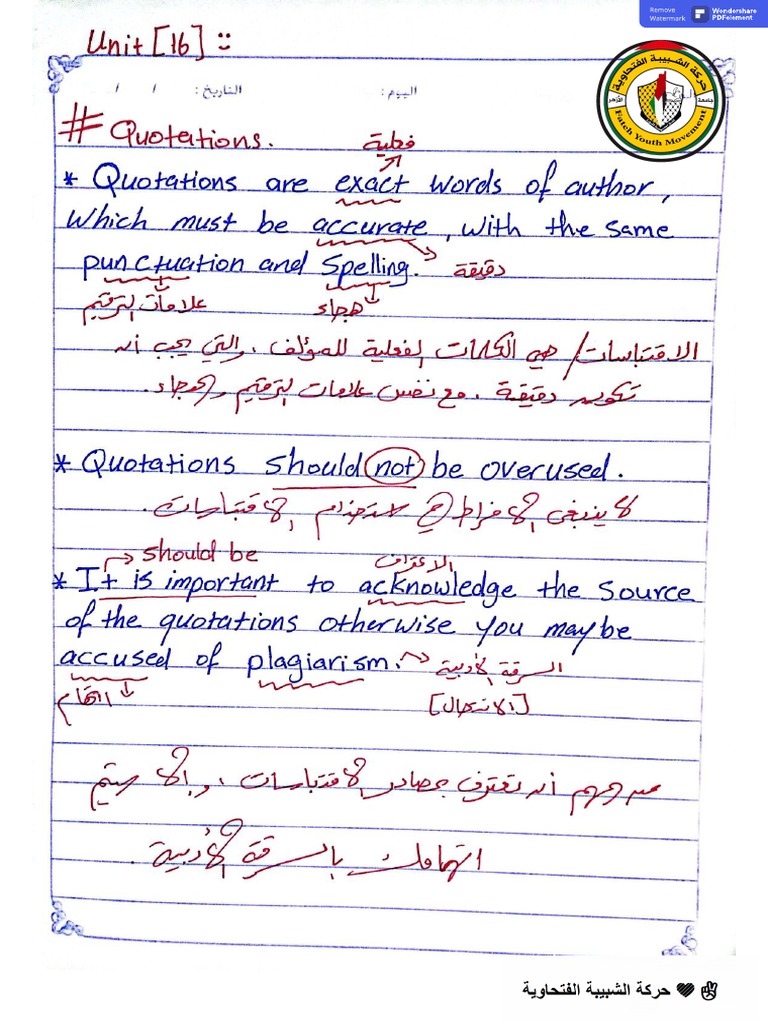 Remove Watermark
Wondershare PDFelement
Unit [16] :-
حركة الشبيبة الفتحاوية
Fateh Youth Movement
اليوم: التاريخ: / /
# Quotations.
فعلية
* Quotations are exact words of author,
which must be accurate, with the same
punctuation and spelling. دقيقة
علامات الترقيم هجاء
الاقتباسات/ هي الكلمات الفعلية للمؤلف، والتي يجب أن
تكون دقيقة، مع نفس علامات الترقيم والهجاء.
* Quotations should not be overused.
لا ينبغي الإفراط في استخدام الاقتباسات.
should be الاعتراف
* It is important to acknowledge the source
of the quotations otherwise you may be
accused of plagiarism. السرقة الأدبية
اتهام [الانتحال]
من المهم أن تعترف بمصادر الاقتباسات، وإلا سيتم
اتهامك بالسرقة الأدبية.
✌ ❤ حركة الشبيبة الفتحاوية